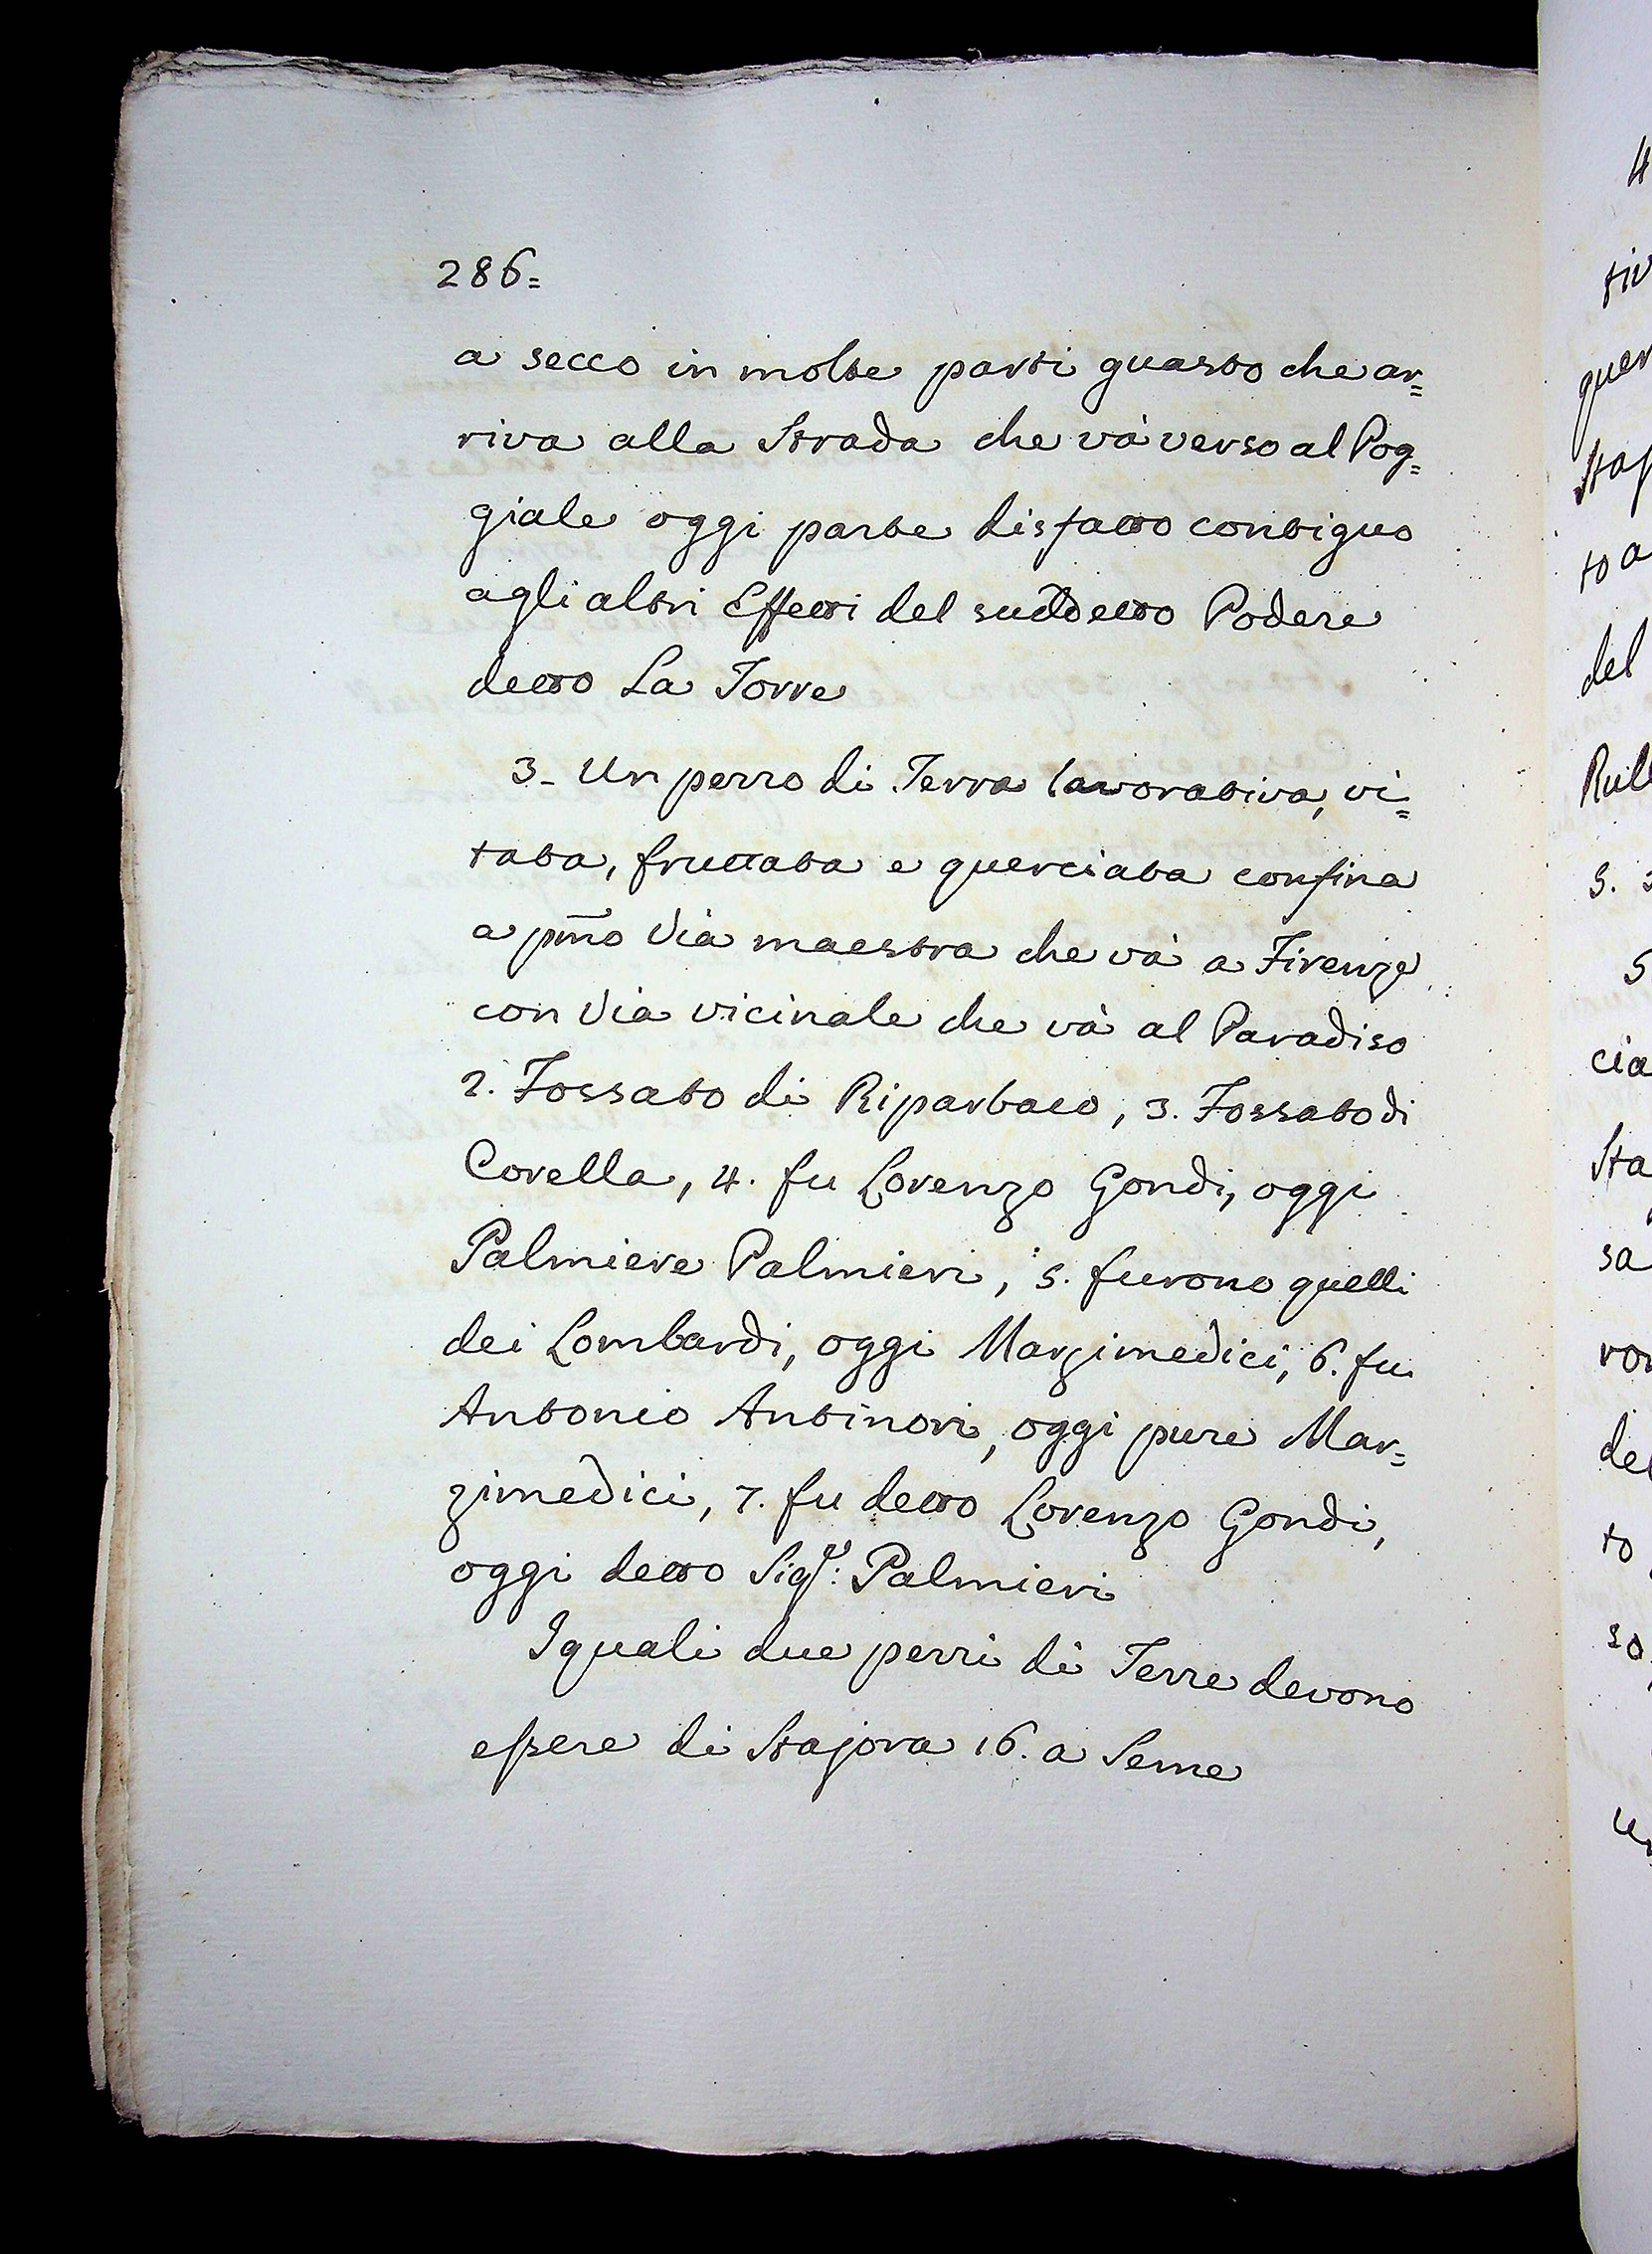 286=
a secco in molte parti guasto che ar=
riva alla Strada che và verso al Pog=
giale oggi parte disfatto contiguo
agli altri Effetti del suddetto Podere
detto La Torre
3_ Un pezzo di Terra lavorativa, vi=
tata, fruttata e querciata confina
a pmo Via maestra che và a Firenze
con Via vicinale che và al Paradiso
2. Fossato di Ripartaco, 3. Fossato di
Corella, 4. fu Lorenzo Gondi, oggi
Palmiere Palmieri, 5. furono quelli
dei Lombardi, oggi Marzimedici, 6. fu
Antonio Antinori, oggi pure Mar=
zimedici, 7. fu detto Lorenzo Gondi,
oggi detto Sigr: Palmieri
I quali due pezzi di Terre devono
essere di Stajora 16. a Seme
4
del
5
cia
Sta
sa
to
so